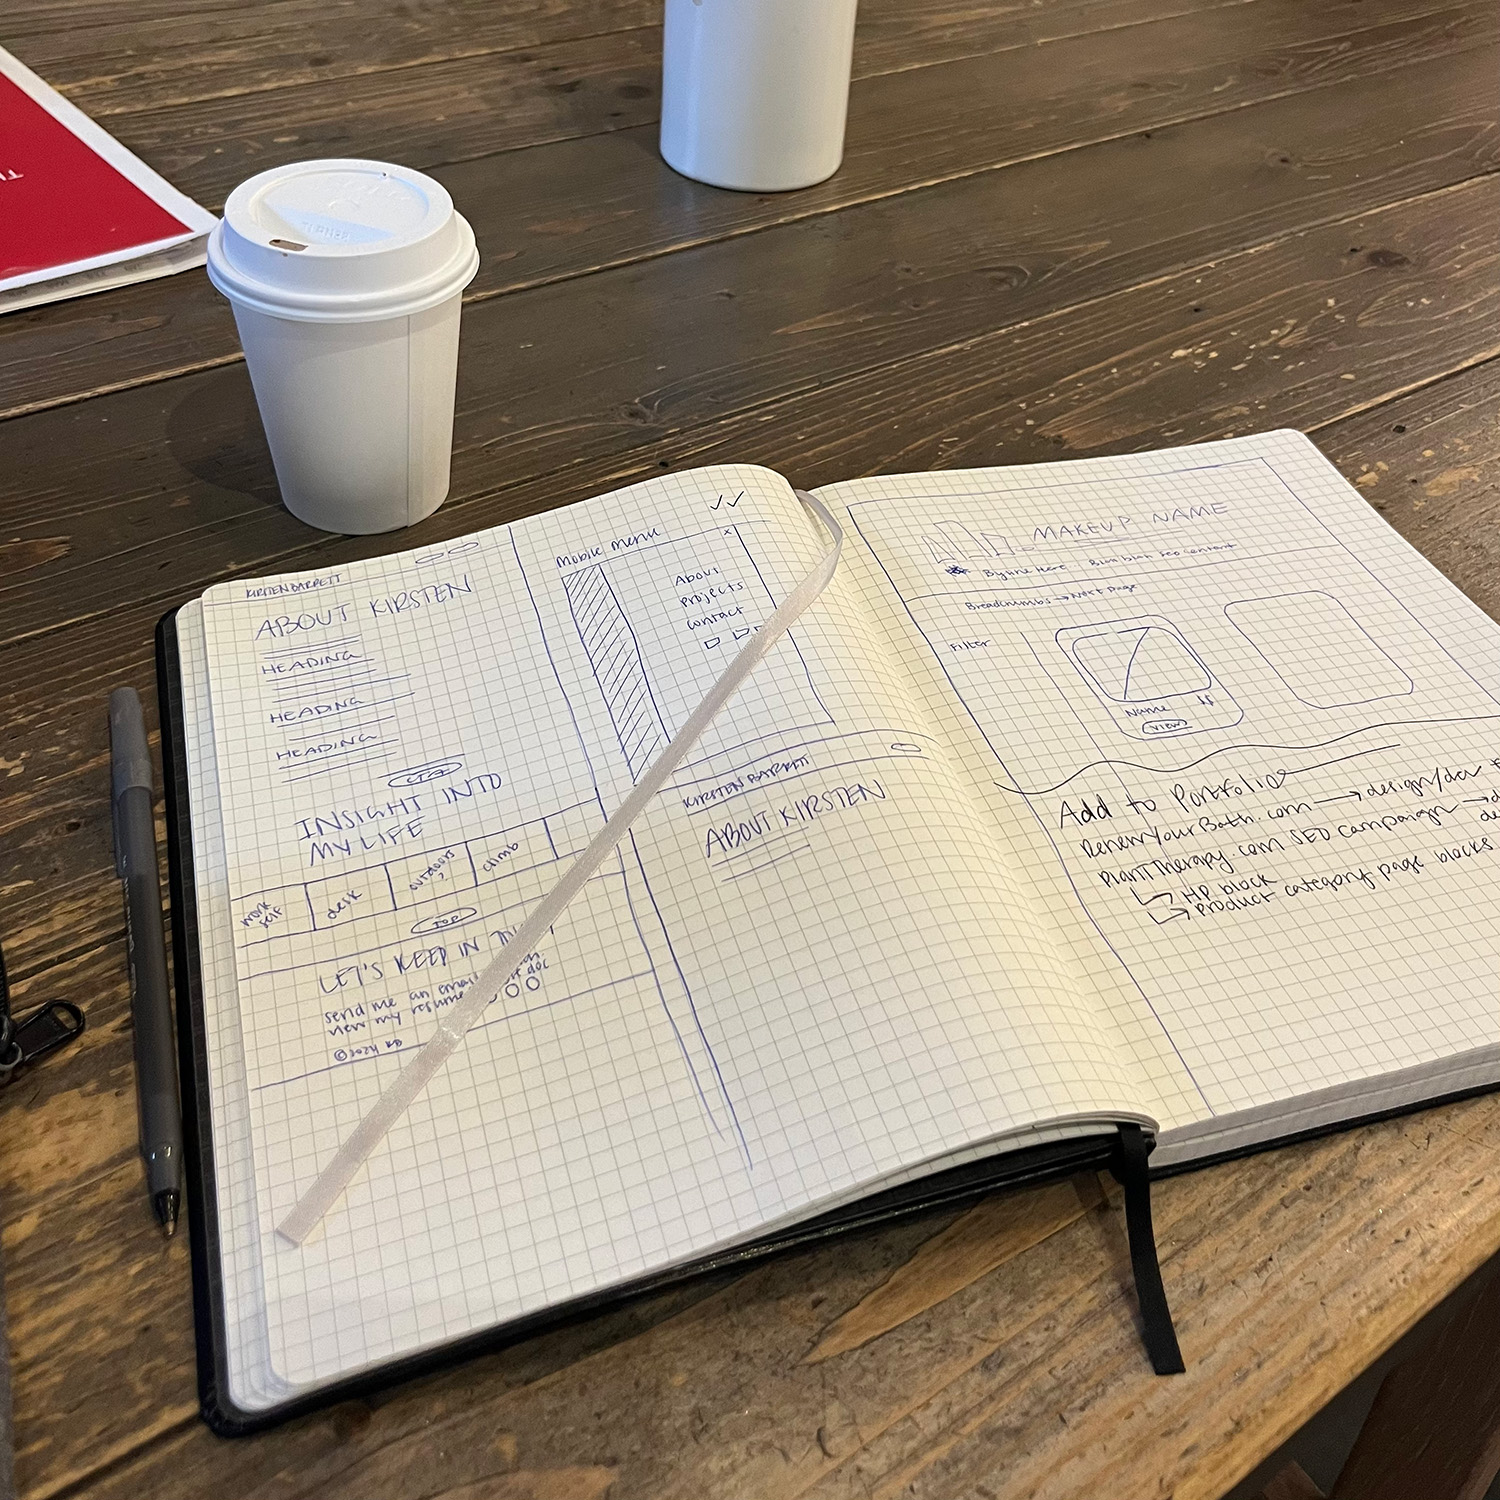 KIRSTEN BARRETT
ABOUT KIRSTEN
HEADING
HEADING
HEADING
CTA
INSIGHT INTO
MY LIFE
work
self
desk
outdoors
climb
TOP
LET'S KEEP IN
send me an email
view my resume
doc
©2024 KB
Mobile menu
x
About
Projects
Contact
KIRSTEN BARRETT
ABOUT KIRSTEN
MAKEUP NAME
Byline Here Blah blah seo content
Breadcrumbs → Next Page
Filter
Name
View
Add to Portfolio
RenewYourBath.com → design/dev
PlantTherapy.com SEO campaign →
HP block
Product category page blocks